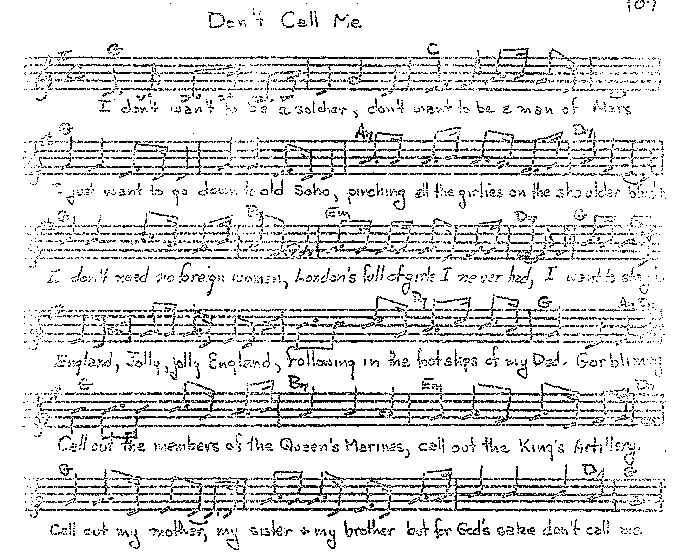 109
Don't Call Me
G C
I don't want to be a soldier, don't want to be a man of Mars
G A7 D7
I just want to go down to old Soho, pinching all the girlies on the shoulder
G B7 Em D7 G
I don't need no foreign women, London's full of girls I never had, I want to stay in
D7 G
England, Jolly, jolly England, Following in the footsteps of my Dad. Gorblimey
G Bm Em
Call out the members of the Queen's Marines, call out the King's Artillery.
G D7 G
Call out my mother, my sister + my brother but for God's sake don't call me